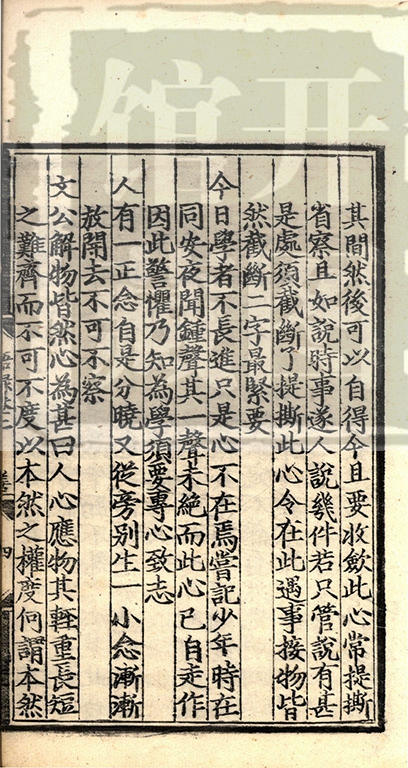 其間然後可以自得今且要收斂此心常提撕
省察且如說時事遂人說幾件若只管說有甚
是處須截斷了提撕此心令在此遇事接物皆
然截斷二字最緊要
今日學者不長進只是心不在焉嘗記少年時在
同安夜聞鍾聲其一聲未絕而此心已自走作
因此警懼乃知為學須要專心致志
人有一正念自是分曉又從旁別生一小念漸漸
放開去不可不察
文公解物皆然心為甚曰人心應物其輕重長短
之難齊而不可不度以本然之權度何謂本然